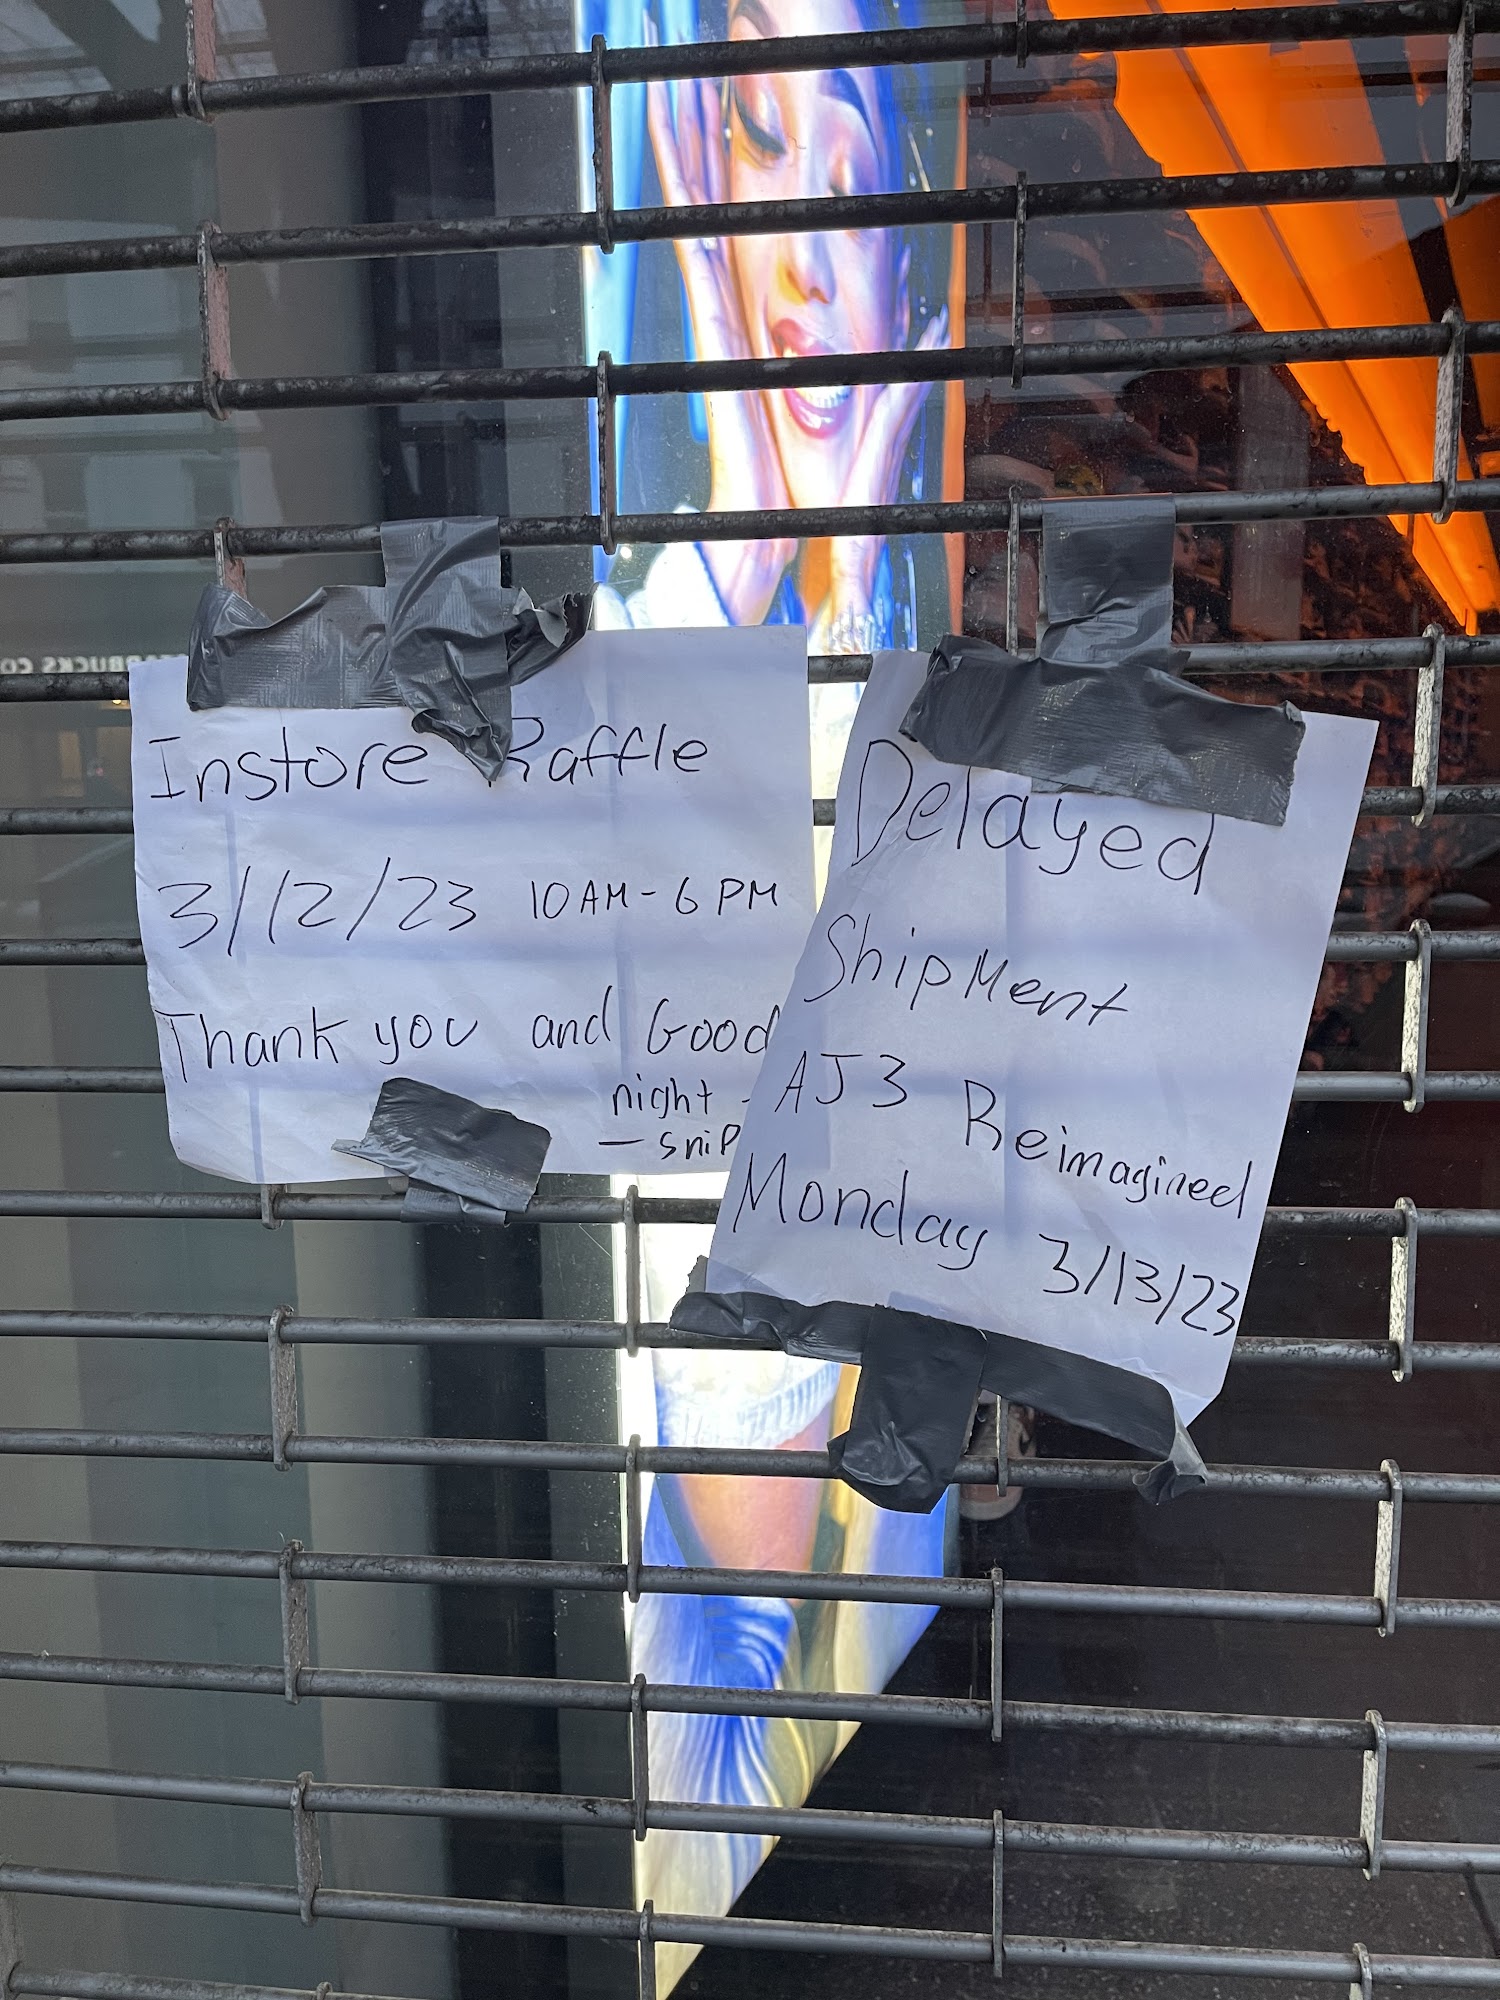 Instore Raffle
3/12/23 10AM-6PM
Thank you and Good
night -
— snip
Delayed
Shipment
AJ3 Reimagined
Monday 3/13/23